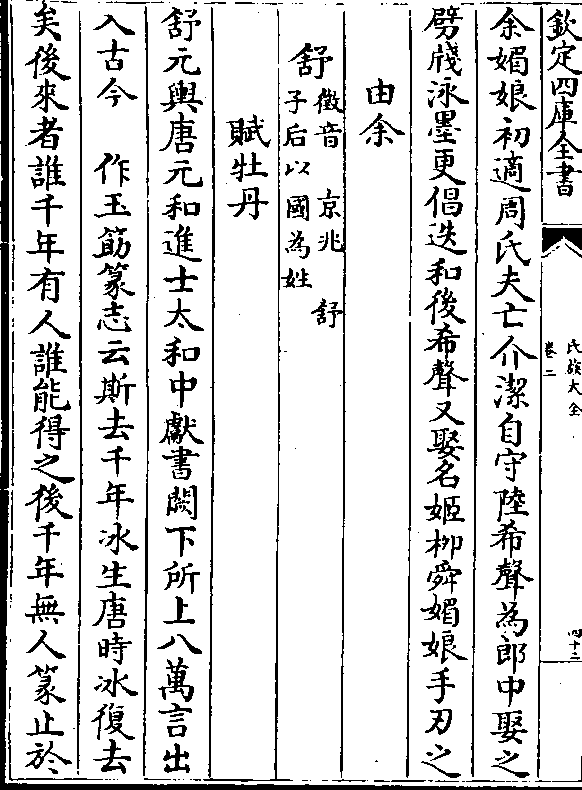 欽定四庫全書
氏族大全
卷二
四十三
余媚娘初適周氏夫亡介潔自守陸希聲為郎中娶之
劈牋泳墨更倡迭和後希聲又娶名姬柳舜媚娘手刃之
由余
舒
徵音 京兆 舒
子后以國為姓
賦牡丹
舒元輿唐元和進士太和中獻書闕下所上八萬言出
入古今 作玉筯篆志云斯去千年冰生唐時冰復去
矣後來者誰千年有人誰能得之後千年無人篆止於